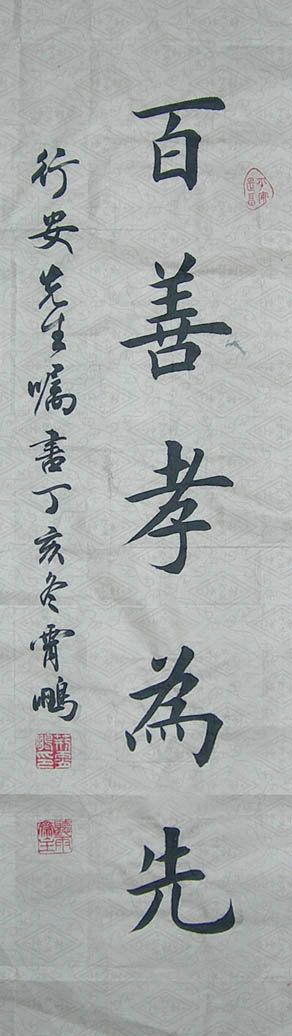 百善孝為先
行安先生嘱書丁亥冬霄鵬